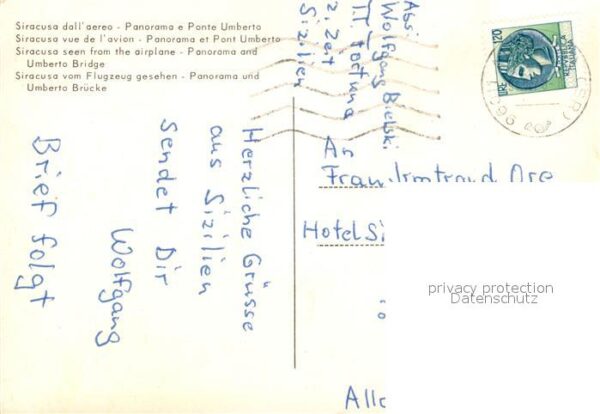 Siracusa dall'aereo - Panorama e Ponte Umberto
Siracusa vue de l'avion - Panorama et Pont Umberto
Siracusa seen from the airplane - Panorama and
Umberto Bridge
Siracusa vom Flugzeug gesehen - Panorama und
Umberto Brücke
Herzliche Grüsse
aus Sizilien
sendet Dir
Wolfgang
Brief folgt
Abs:
Wolfgang Bielski
T.T. Fortuna
z. Zeit
Sizilien
LIRE 120
REPUBBLICA
ITALIANA
An
Frau Irmtraud
Hotel Si
privacy protection
Datenschutz